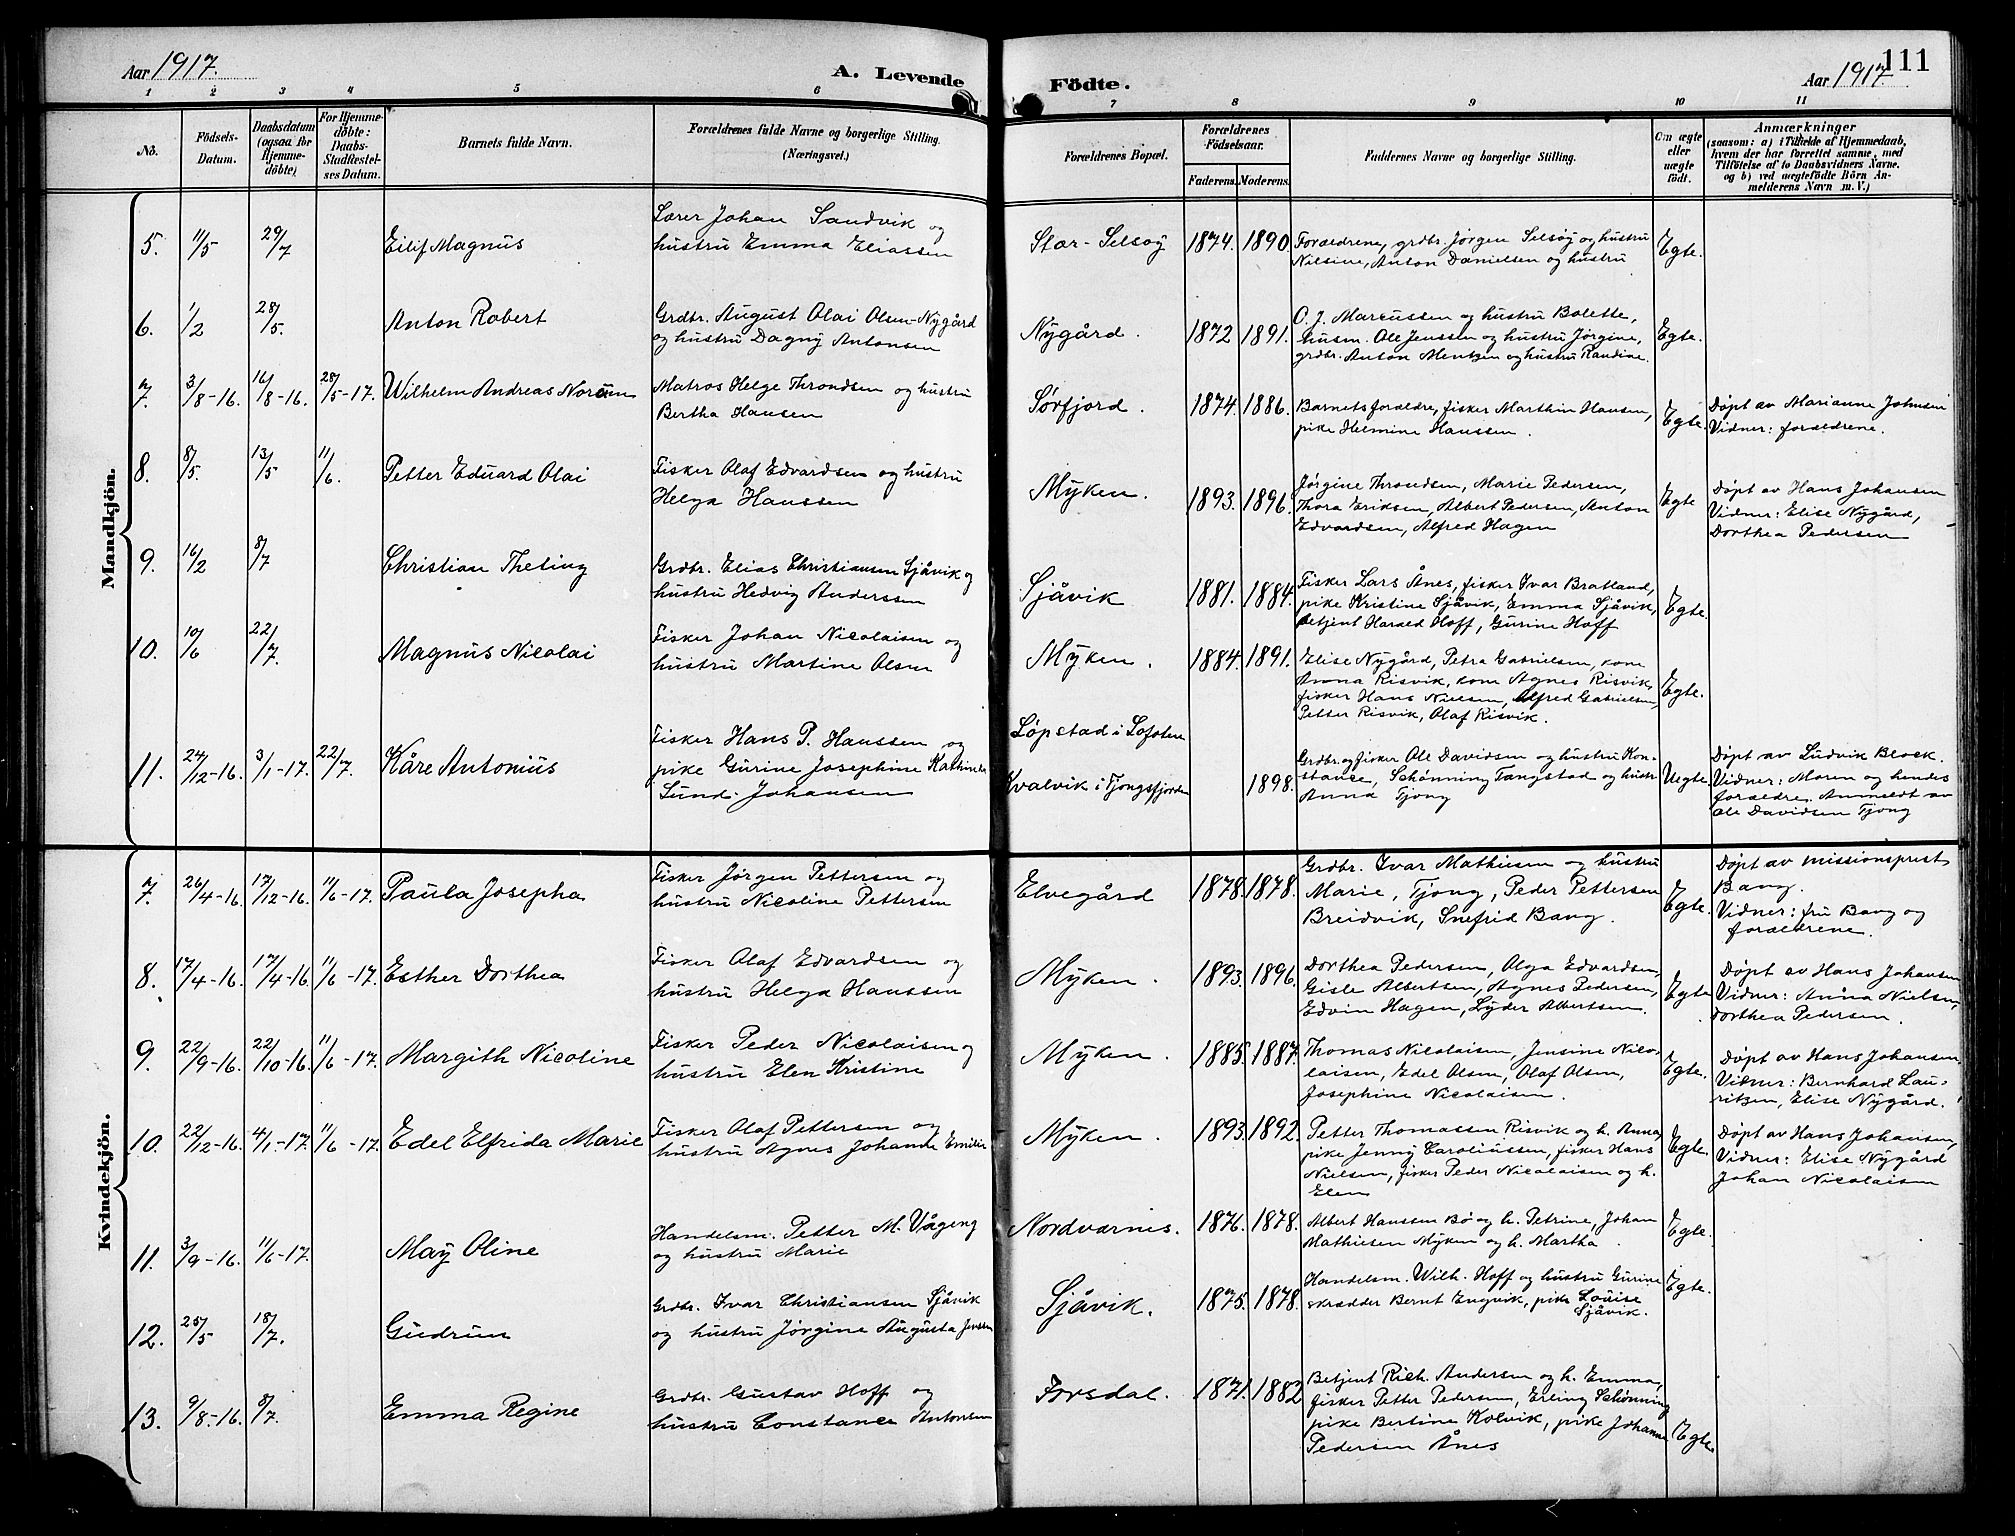 Aar 1917.
A. Levende Födte.
Aar 1917.
111
1 2 3 4 5 6 7 8 9 10 11
No.
Födsels-
Datum.
Daabsdatum
(ogsaa for
Hjemme-
döbte)
For Hjemme-
döbte:
Daabs-
Stadfæstel-
ses Datum.
Barnets fulde Navn.
Forældrenes fulde Navne og borgerlige Stilling.
(Næringsvei.)
Forældrenes Bopæl.
Forældrenes
Födselsaar.
Faderens. Moderens.
Faddernes Navne og borgerlige Stilling.
Om ægte
eller
uægte
födt.
Anmærkninger
(saasom: a) i Tilfælde af Hjemmedaab,
hvem der har forrettet samme, med
Tilföielse af to Daabsvidners Navne.
og b) ved uægtefödte Börn An-
melderens Navn m. V.)
Mandkjön.
5. 11/5 29/7 Eilif Magnus
Lærer Johan Sandvik og
hustru Emma Eliassen
Stor-Selsøy 1874. 1890
Forældrene, grdbr. Jørgen Selsöy og hustru
Nilsine, Anton Danielsen og hustru
Egte.
6. 1/2 28/5. Anton Robert
Grdbr. August Olai Olsen-Nygård
og hustru Dagny Antonsen
Nygård. 1872 1891.
O. J. Marcussen og hustru Bolette,
husm. Ole Jenssen og hustru Jørgine,
grdbr. Anton Mentzen og hustru Randine.
Egte.
7. 3/8-16. 16/8-16. 28/5-17. Wilhelm Andreas Norum
Matros Helge Throndsen og hustru
Bertha Hansen
Sørfjord. 1874. 1886.
Barnets forældre, fisker Marthin Hansen,
pike Helmine Hanssen.
Egte.
Døpt av Marianne Johnsen
Vidner: forældrene.
8. 8/5. 13/5 11/6. Petter Eduard Olai
Fisker Olaf Edvardsen og hustru
Helga Hanssen
Myken. 1893. 1896.
Jørgine Throndsen, Marie Pedersen,
Thora Eriksen, Albert Pedersen, Anton
Edvardsen, Alfred Hagen
Egte
Døpt av Hans Johansen
Vidner: Elise Nygård,
Dorthea Pedersen
9. 16/2 8/7 Christian Theting
Grdbr. Elias Christiansen Sjåvik og
hustru Hedvig Anderssen
Sjåvik 1881. 1884.
Fisker Lars Ånes, fisker Ivar Bratland,
pike Kristine Sjåvik, Emma Sjåvik,
betjent Harald Hoff, Gurine Hoff
Egte.
10. 10/6 22/7. Magnus Nicolai
Fisker Johan Nicolaisen og
hustru Martine Olsen
Myken. 1884. 1891.
Elise Nygård, Petra Gabrielsen, kone
Anna Risvik, kone Agnes Risvik,
fisker Hans Nielsen, Alfred Gabrielsen,
Petter Risvik, Olaf Risvik.
Egte.
11. 24/12-16. 3/1-17. 22/7. Kåre Antonius
Fisker Hans P. Hanssen og
pike Gurine Josephine Kathinka
Lund-Johansen
Løpstad i Lofoten
Kvalvik i Tjongsfjorden
1898.
Grdbr. og fisker Ole Davidsen og hustru Kon-
stance, Schønning Tangstad og hustr
Anna Tjong
Uegte.
Døpt av Ludvik Block.
Vidner: Moren og hendes
forældre. Anmeldt av
Ole Davidsen Tjong
Kvindekjön.
7. 26/4-16. 17/12-16. 11/6-17. Paula Josepha
Fisker Jørgen Pettersen og
hustru Nicoline Pettersen
Elvegård 1878. 1878.
Grdbr. Ivar Mathisen og hustru
Marie, Tjong, Peder Pettersen
Breidvik, Snefrid Bang.
Egte.
Døpt av missionsprest
Bang.
Vidner: fru Bang og
forældrene.
8. 17/4-16. 17/4-16. 11/6-17. Esther Dorthea
Fisker Olaf Edvardsen og
hustru Helga Hanssen
Myken. 1893. 1896.
Dorthea Pedersen, Olga Edvardsen,
Gisle Albertsen, Agnes Pedersen,
Edvin Hagen, Lyder Albertsen.
Egte.
Døpt av Hans Johansen
Vidner: Anna Nielsen,
Dorthea Pedersen.
9. 22/9-16. 22/10-16. 11/6-17. Margith Nicoline
Fisker Peder Nicolaisen og
hustru Elen Kristine
Myken. 1885. 1887.
Thomas Nicolaisen, Jensine Nico-
laisen, Edel Olsen, Olaf Olsen,
Josephine Nicolaisen.
Egte.
Døpt av Hans Johansen.
Vidner: Bernhard Lau-
ritzen, Elise Nygård.
10. 22/12-16. 4/1-17. 11/6-17. Edel Elfrida Marie
Fisker Olaf Pettersen og
hustru Agnes Johanna Emilie
Myken. 1893. 1892.
Petter Thomassen Risvik og h. Anna,
pike Jenny Caroliussen, fisker Hans
Nielsen, fisker Peder Nicolaisen og h.
Elen
Egte.
Døpt av Hans Johansen,
Vidner: Elise Nygård
Johan Nicolaisen
11. 3/9-16. 11/6-17. May Oline
Handelsm. Petter M. Vågeng
og hustru Marie
Nordværnes. 1876. 1878.
Albert Hanssen Bø og h. Petrine, Johan
Mathisen Myken og h. Martha.
Egte.
12. 25/5 18/7. Gudrun
Grdbr. Ivar Christiansen Sjåvik
og hustru Jørgine Augusta Jenssen
Sjåvik. 1875. 1878.
Handelsm. Wilh. Hoff og hustru Gurine
skrædder Bernt Engvik, pike Louise
Sjåvik.
Egte.
13. 9/8-16. 8/7. Emma Regine
Grdbr. Gustav Hoff og
hustru Constance Antonsen
Forsdal. 1871. 1882
Betjent Rich. Andersen og h. Emma,
fisker Petter Pedersen, Erling Schønning
pike Bertine Kolvik, pike Johanne
Pedersen Ånes
Egte.